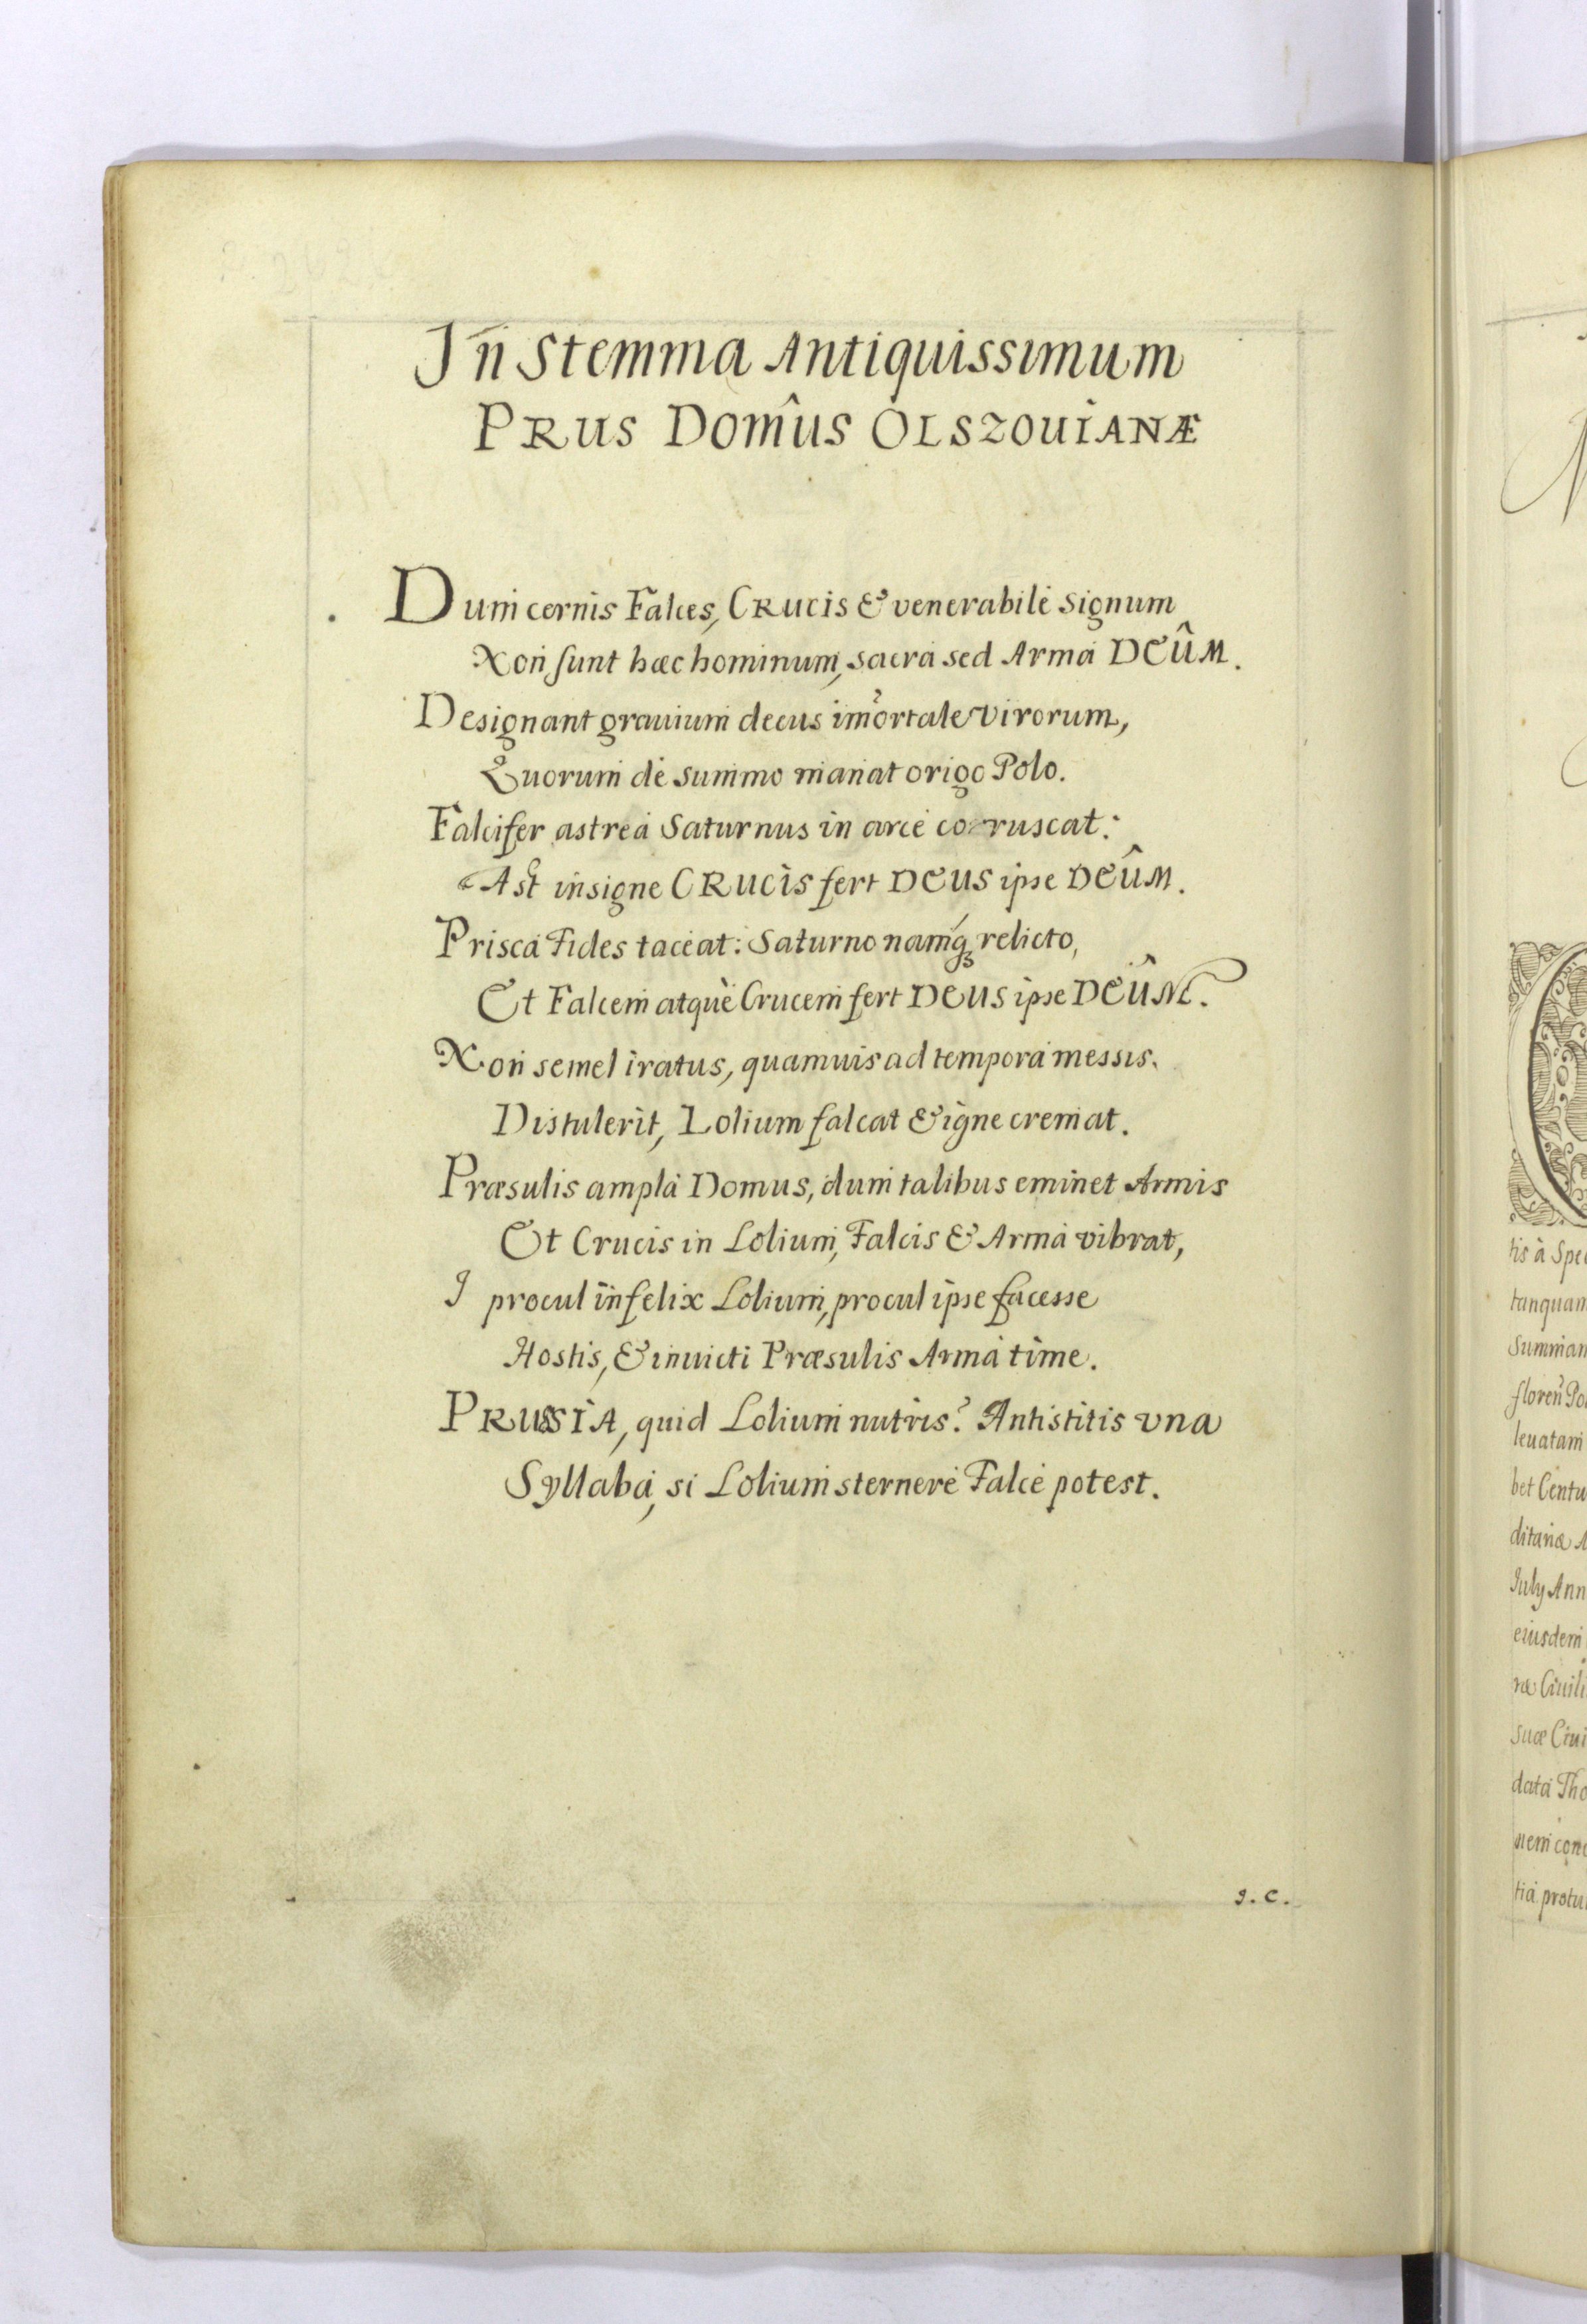 In Stemma Antiquissimum
PRUS Domûs OLSZOUIANÆ
Dum cernis Falces, CRUCIS & venerabile signum
Non sunt hæc hominum, sacra sed Arma DEÛM.
Designant grauium decus im̃ortale virorum,
Quorum de summo manat origo Polo.
Falcifer astrea Saturnus in arce coruscat:
Ast insigne CRUCIS fert DEUS ipse DEÛM.
Prisca Fides taceat: Saturno namq́ꝫ relicto,
Et Falcem atque Crucem fert DEUS ipse DEÛM.
Non semel iratus, quamuis ad tempora messis
Distulerit, Lolium falcat & igne cremat.
Præsulis ampla Domus, dum talibus eminet Armis
Et Crucis in Lolium, Falcis & Arma vibrat,
I procul infelix Lolium, procul ipse facesse
Hostis, & inuicti Præsulis Arma time.
PRUSSIA, quid Lolium nutris? Antistitis vna
Syllaba, si Lolium sternere Falce potest.
J. C.
tis à Spe
tanquam
Summam
floreñ Po
leuatam
bet Centu
ditariæ A
July Ann
eiusdem
ræ Ciuili
suæ Ciui
data Tho
nem con
tia protu